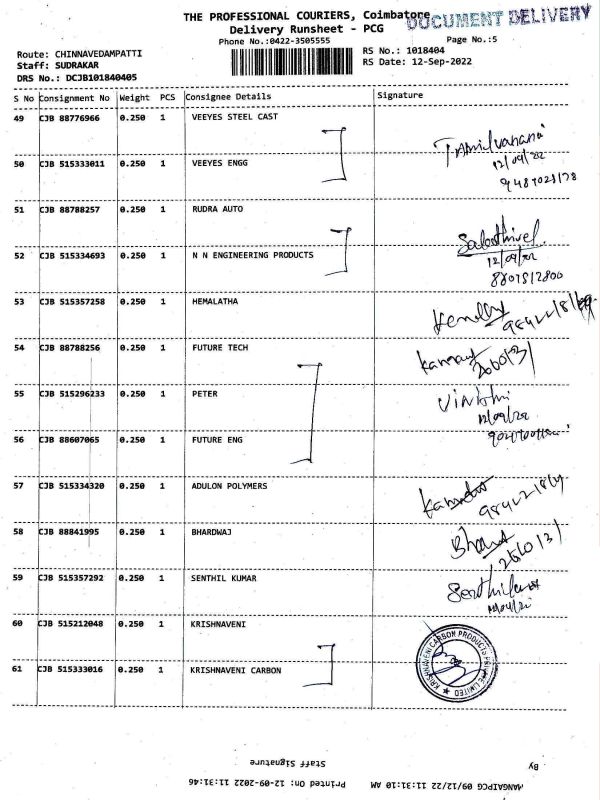 THE PROFESSIONAL COURIERS, Coimbatore
DOCUMENT DELIVERY
Delivery Runsheet - PCG
Phone No.:0422-3505555
Page No.:5
Route: CHINNAVEDAMPATTI
RS No.: 1018404
Staff: SUDRAKAR
RS Date: 12-Sep-2022
DRS No.: DCJB101840405
S No Consignment No Weight PCS Consignee Details Signature
49 CJB 88776966 0.250 1 VEEYES STEEL CAST
Tamilvanana
12/09/22
50 CJB 515333011 0.250 1 VEEYES ENGG
51 CJB 88788257 0.250 1 RUDRA AUTO
52 CJB 515334693 0.250 1 N N ENGINEERING PRODUCTS
12/09/22
53 CJB 515357258 0.250 1 HEMALATHA
54 CJB 88788256 0.250 1 FUTURE TECH
55 CJB 515296233 0.250 1 PETER
12/09/22
56 CJB 88607065 0.250 1 FUTURE ENG
57 CJB 515334320 0.250 1 ADULON POLYMERS
58 CJB 88841995 0.250 1 BHARDWAJ
59 CJB 515357292 0.250 1 SENTHIL KUMAR
60 CJB 515212048 0.250 1 KRISHNAVENI
61 CJB 515333016 0.250 1 KRISHNAVENI CARBON
KRISHNAVENI CARBON PRODUCTS PRIVATE LIMITED
By
Staff Signature
MANGAIPCG 09/12/22 11:31:10 AM Printed On: 12-09-2022 11:31:46